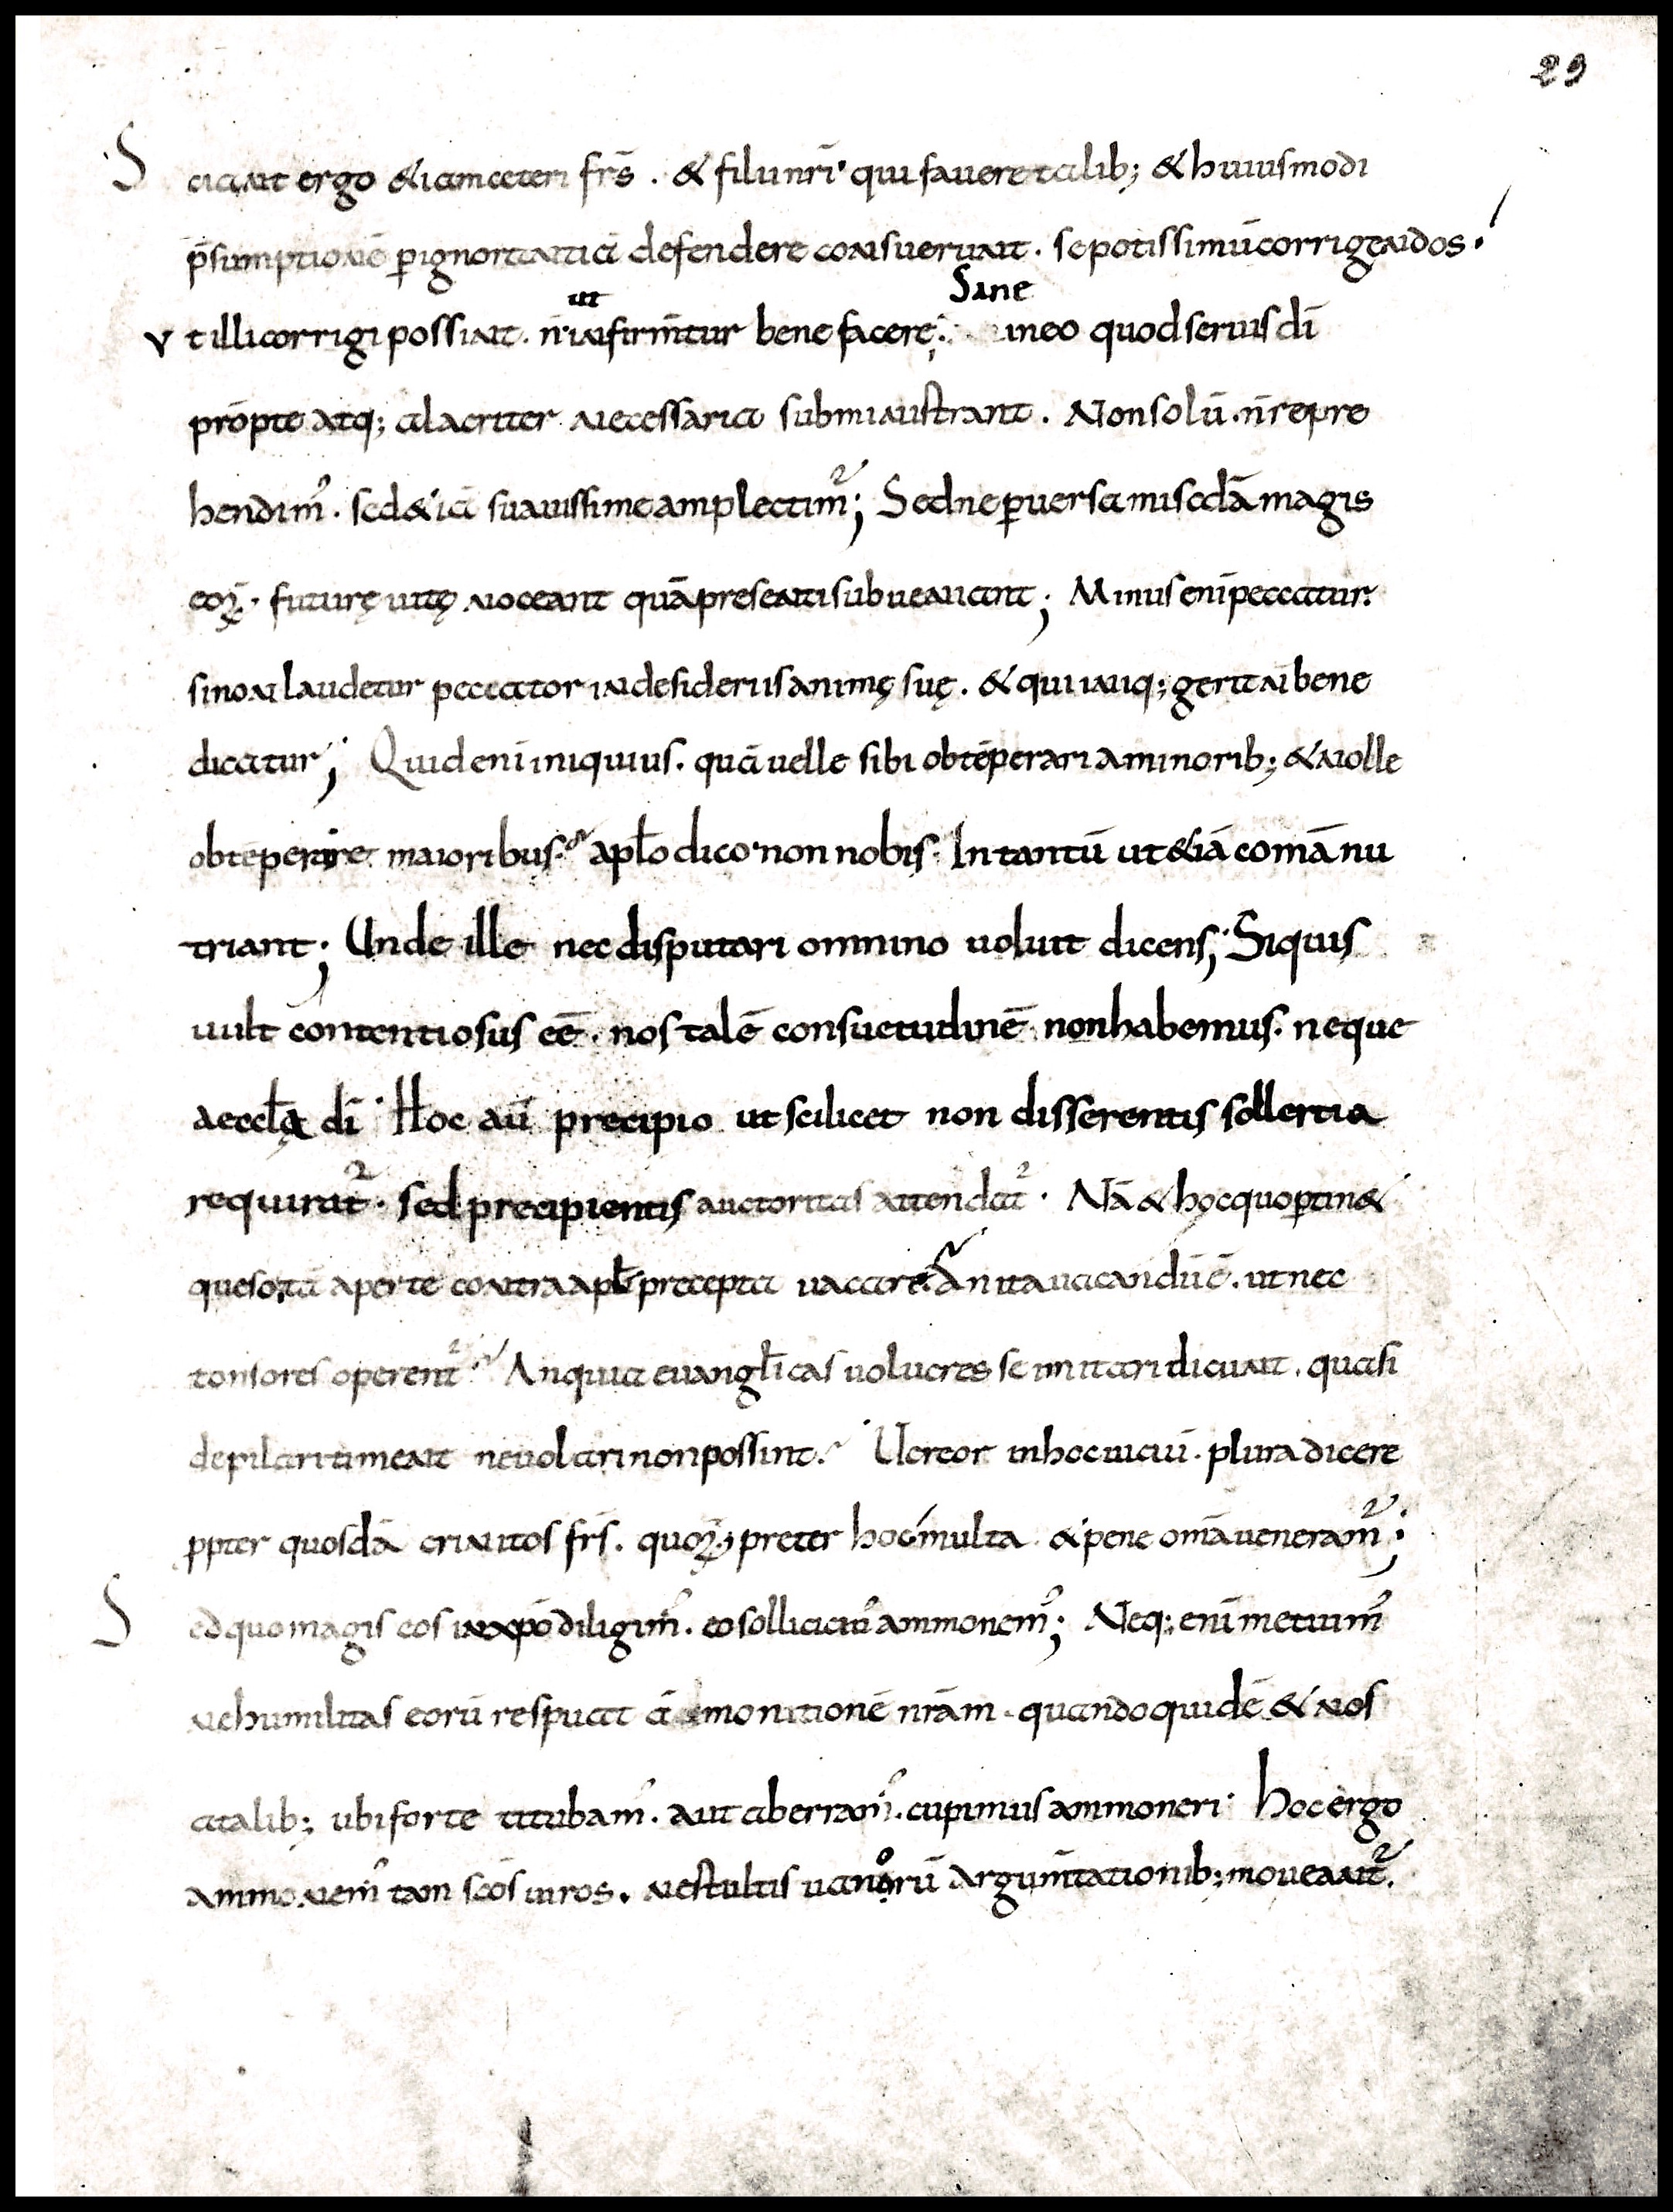 29
Sciant ergo & iam ceteri frs̄. & filii nr̄i qui favere talib; & huiusmodi
p̄sumptionē p̱ ignorantiā defendere consuerunt. se potissimū corrigendos.
Ut illi corrigi possint. n̄ ut infirm̄tur bene facere; Sane in eo quod seruis dī
prōpte atq; alacriter necessaria subministrant. Non solū. n̄ repre
hendim᾽. sed &iā suavissime amplectim᾽; Sed ne p̱uersa misc̄dā magis
eoꝝ. futurę uitę noceant quā presenti subueniant; Minus enī peccatur
si non laudetur peccator in desideriis animę suę. & qui iniq; gerit n̄ bene
dicatur; Quid enī iniquius. quā uelle sibi obtēperari a minorib; & nolle
obtēperare maioribus. apło dico non nobis. In tantū ut &iā comā nu
triant; Unde ille nec disputari omnino uoluit dicens; Siquis
uult contentiosus eē. nos talē consuetudinē non habemus. neque
aeccła dī. Hoc aū precipio ut scilicet non disserentis sollertia
requirat᾽. sed precipientis auctoritas attendat᾽. Nā & hoc quo p̱tin&
queso. tā aperte contra apłi precepta uacare. An ita uacandū ē. ut nec
tonsores operent᾽. An quia euangłicas uolucres se imitari dicunt. quasi
depilari timent ne uolari non possint. Uereor in hoc uiciū. plura dicere
ꝓpter quosdā crinitos frs̄. quoꝝ; preter hoc multa & pene om̄a ueneram᾽;
Sed quo magis eos in xp̄o diligim᾽. eo solliciti᾽ ammonem᾽; Neq; enī metuim᾽
ne humilitas eorū respuat ā monitionē nr̄am. quandoquidē & nos
a talib; ubi forte titubam᾽. aut aberram᾽. cupimus ammoneri. Hoc ergo
ammonem᾽ tam scōs uiros. ne stultis uanorū argum̄tationib; moueant᾽.